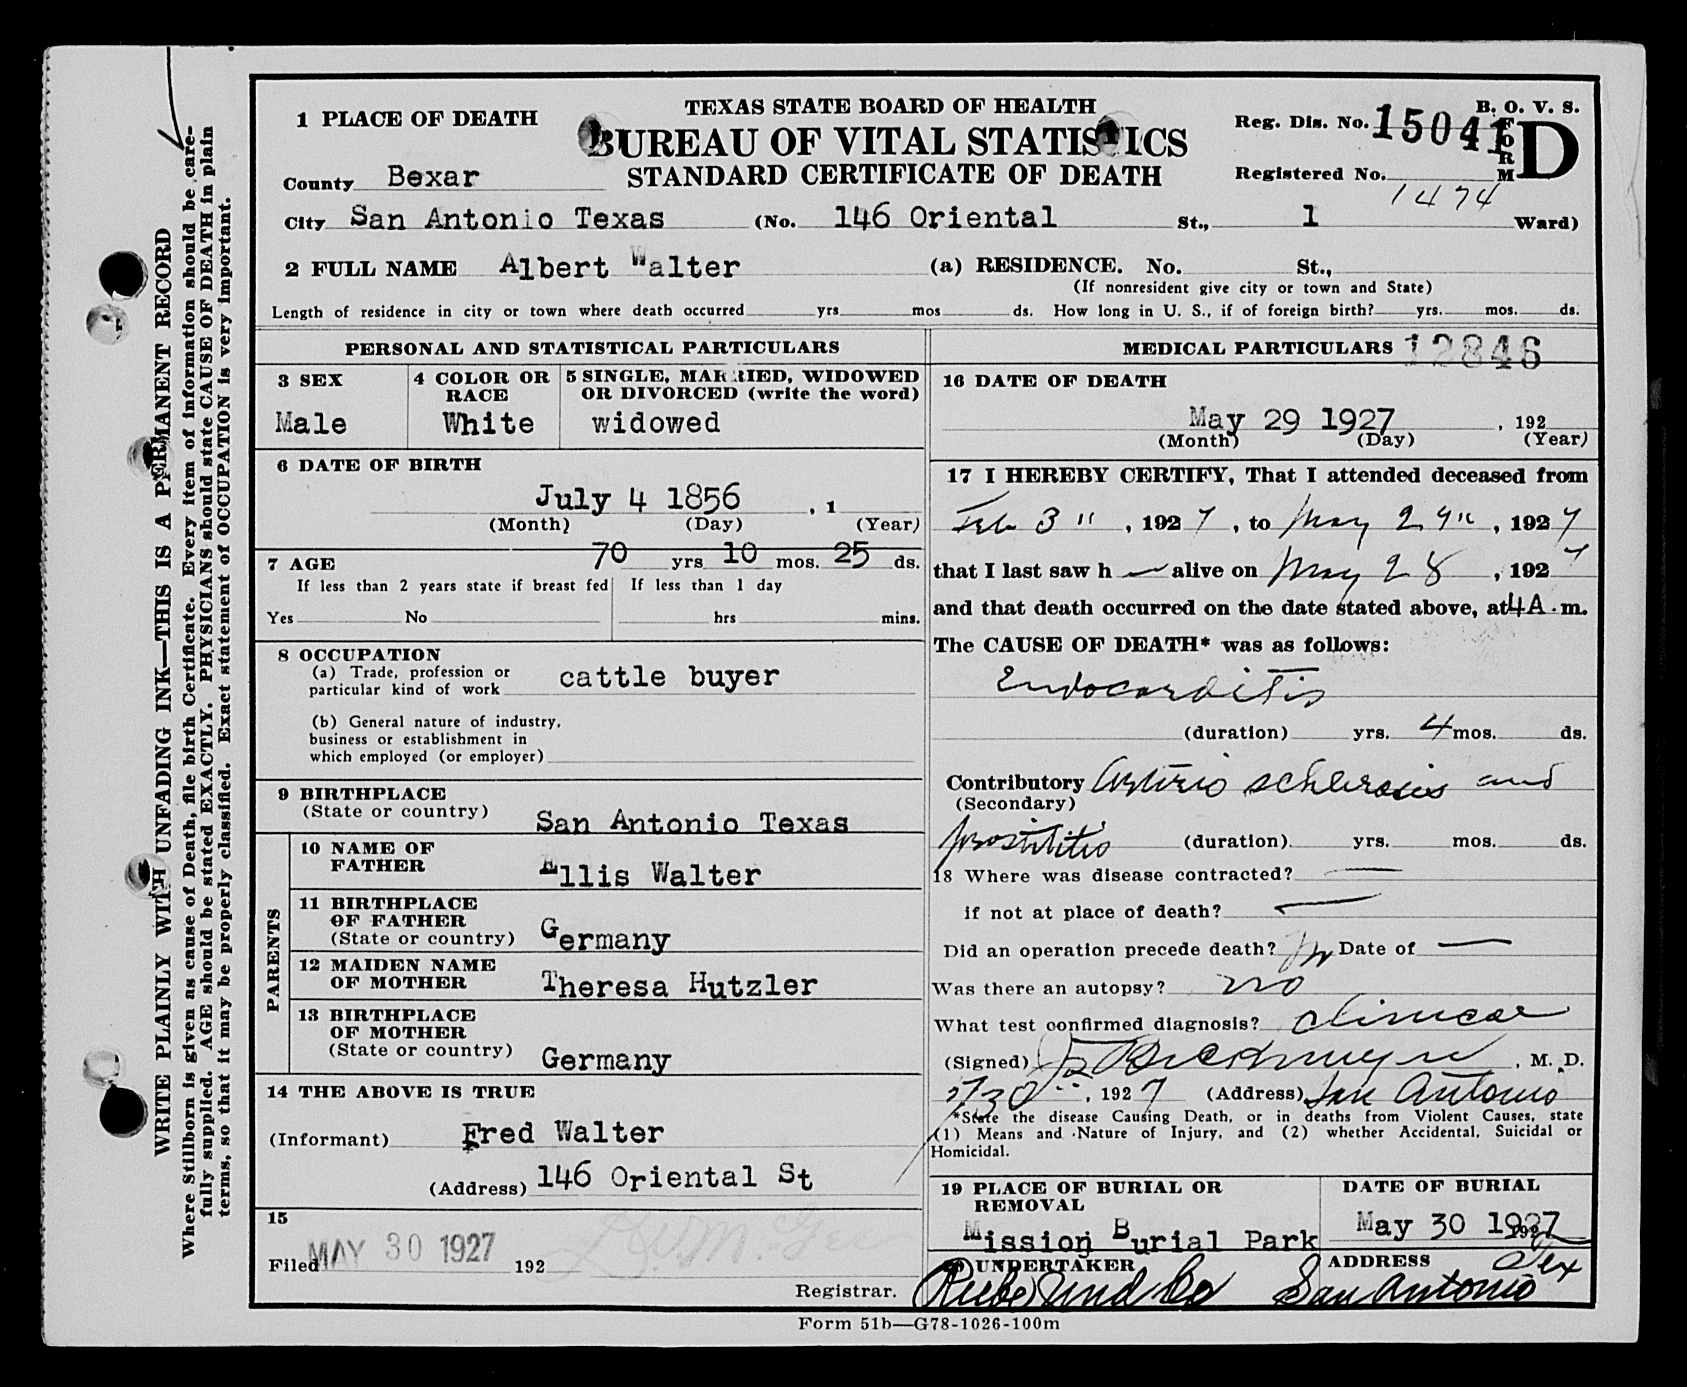 TEXAS STATE BOARD OF HEALTH
BUREAU OF VITAL STATISTICS
STANDARD CERTIFICATE OF DEATH
B. O. V. S.
FORM D
Reg. Dis. No. 15041
Registered No. 1474
1 PLACE OF DEATH
County Bexar
City San Antonio Texas (No. 146 Oriental St., 1 Ward)
2 FULL NAME Albert Walter (a) RESIDENCE. No. St.,
(If nonresident give city or town and State)
Length of residence in city or town where death occurred yrs mos ds. How long in U. S., if of foreign birth? yrs. mos. ds.
PERSONAL AND STATISTICAL PARTICULARS
3 SEX
Male
4 COLOR OR RACE
White
5 SINGLE, MARRIED, WIDOWED
OR DIVORCED (write the word)
widowed
6 DATE OF BIRTH
July 4 1856 , 1
(Month) (Day) (Year)
7 AGE 70 yrs 10 mos. 25 ds.
If less than 2 years state if breast fed If less than 1 day
Yes No hrs mins.
8 OCCUPATION
(a) Trade, profession or
particular kind of work cattle buyer
(b) General nature of industry,
business or establishment in
which employed (or employer)
9 BIRTHPLACE
(State or country) San Antonio Texas
PARENTS
10 NAME OF
FATHER Ellis Walter
11 BIRTHPLACE
OF FATHER
(State or country) Germany
12 MAIDEN NAME
OF MOTHER Theresa Hutzler
13 BIRTHPLACE
OF MOTHER
(State or country) Germany
14 THE ABOVE IS TRUE
(Informant) Fred Walter
(Address) 146 Oriental St
15
Filed MAY 30 1927 192
Registrar.
MEDICAL PARTICULARS 12846
16 DATE OF DEATH
May 29 1927 , 192
(Month) (Day) (Year)
17 I HEREBY CERTIFY, That I attended deceased from
Feb 3" , 1927 , to May 29" , 1927
that I last saw h — alive on May 28 , 1927
and that death occurred on the date stated above, at 4A.m.
The CAUSE OF DEATH* was as follows:
Endocarditis
(duration) yrs. 4 mos. ds.
Contributory Arterio schlerosis and
(Secondary)
prostitis (duration) yrs. mos. ds.
18 Where was disease contracted? —
if not at place of death? —
Did an operation precede death? No Date of —
Was there an autopsy? no
What test confirmed diagnosis? clinical
(Signed) , M. D.
5/30 , 1927 (Address) San Antonio
*State the disease Causing Death, or in deaths from Violent Causes, state
(1) Means and Nature of Injury, and (2) whether Accidental, Suicidal or
Homicidal.
19 PLACE OF BURIAL OR
REMOVAL
Mission Burial Park
DATE OF BURIAL
May 30 1927 192
20 UNDERTAKER
Riebe Und Co
ADDRESS
San Antonio Tex
Form 51b—G78-1026-100m
WRITE PLAINLY WITH UNFADING INK—THIS IS A PERMANENT RECORD
Where Stillborn is given as cause of Death, file birth Certificate. Every item of information should be care-
fully supplied. AGE should be stated EXACTLY. PHYSICIANS should state CAUSE OF DEATH in plain
terms, so that it may be properly classified. Exact statement of OCCUPATION is very important.